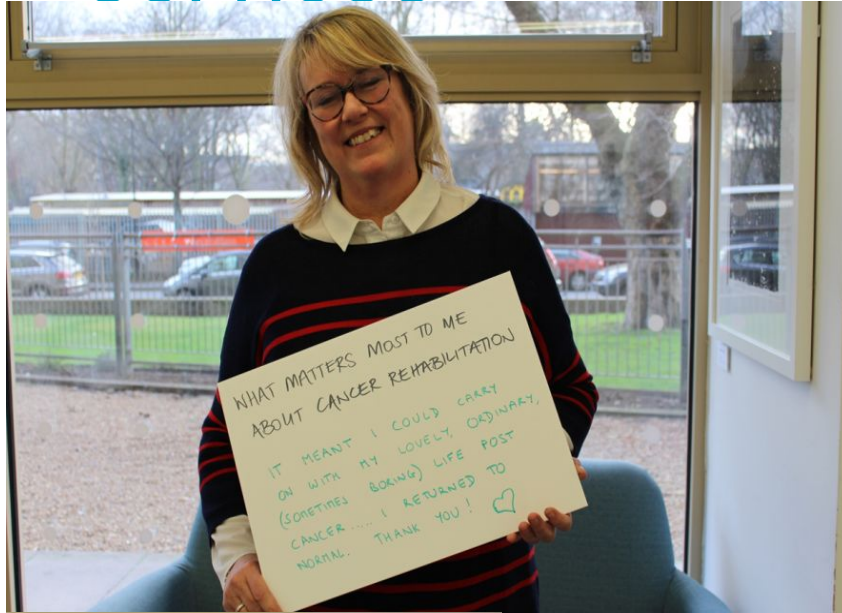 WHAT MATTERS MOST TO ME
ABOUT CANCER REHABILITATION
IT MEANT I COULD CARRY
ON WITH MY LOVELY, ORDINARY,
(SOMETIMES BORING) LIFE POST
CANCER.... I RETURNED TO
NORMAL. THANK YOU!